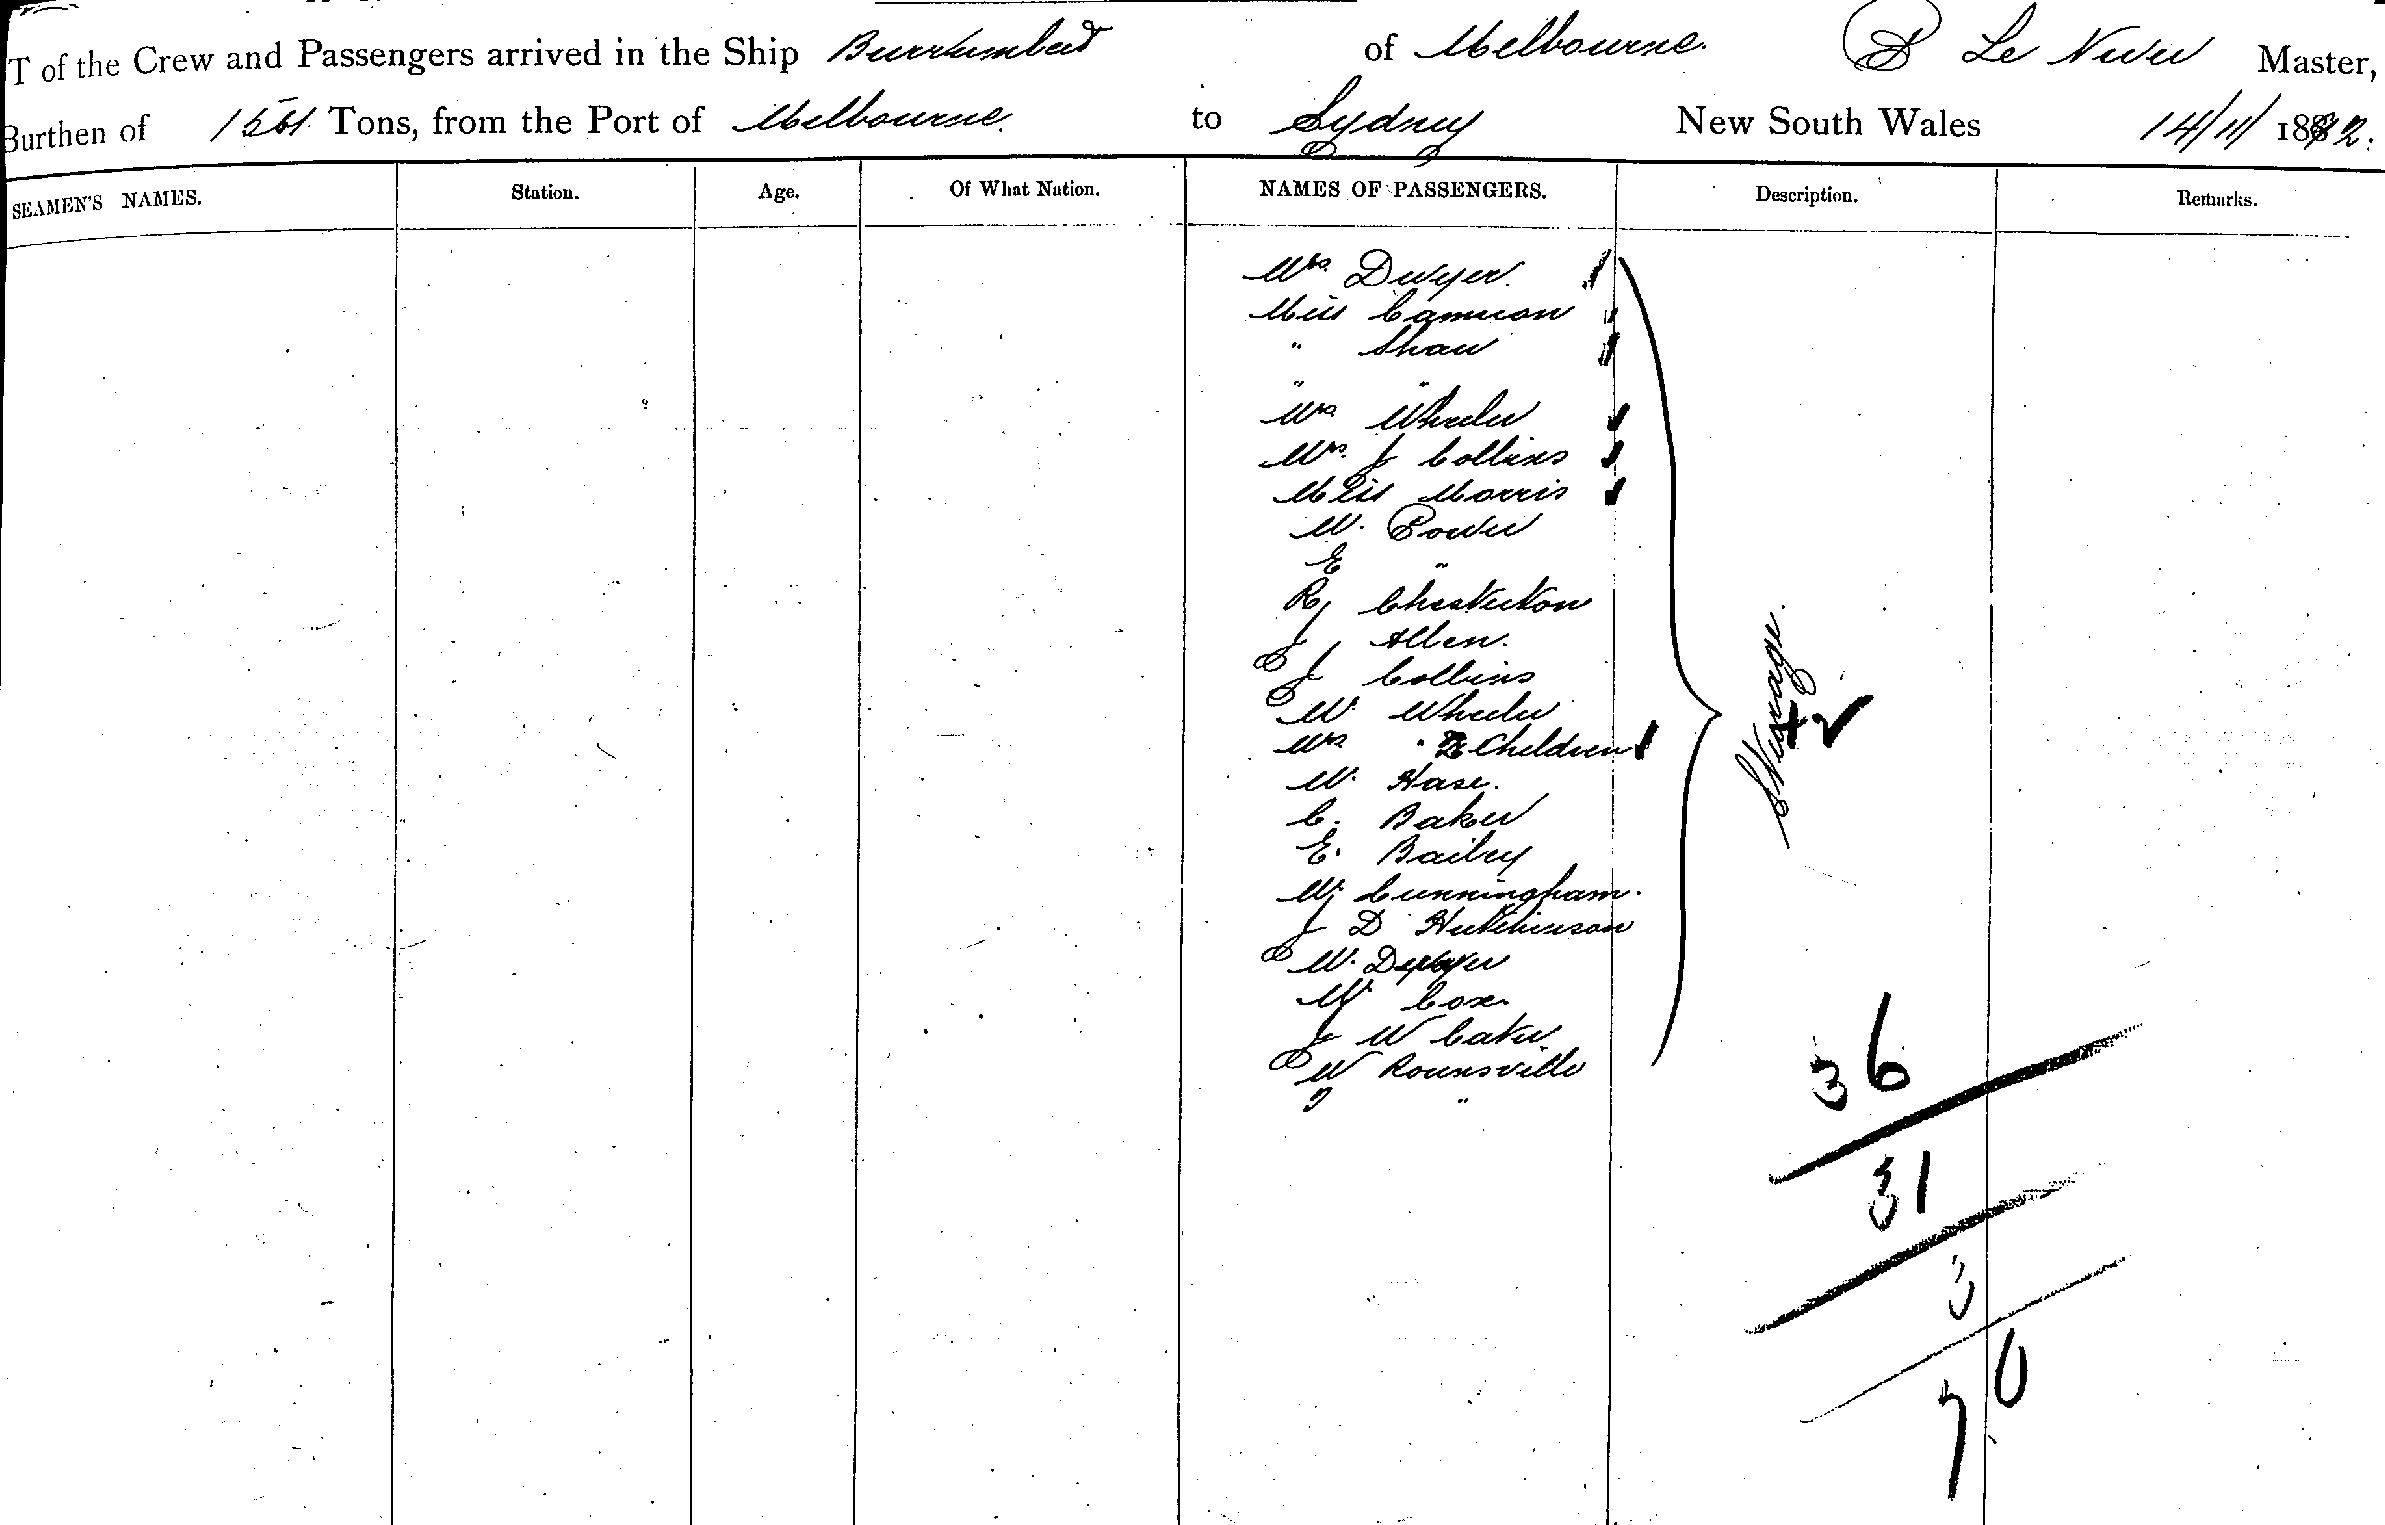 T of the Crew and Passengers arrived in the Ship Burrumbeet of Melbourne. P Le Neveu Master,
Burthen of Tons, from the Port of Melbourne. to Sydney New South Wales 14/11/ 1892.
SEAMEN'S NAMES. Station. Age. Of What Nation. NAMES OF PASSENGERS. Description. Remarks.
Mrs. Dwyer.
Miss Cameron
" Shaw
" "
Mrs Wheeler
Mrs. J Collins
Miss Morris
W. Power
E "
R, Chesterton
J Allen.
J Collins
W. Wheeler
Mrs " 2 Children
W. Hase.
C. Baker
E. Bailey
W. Cunningham.
J D Hutchinson
W. Dwyer
W Cox
J W Cater
W Rounsville
"
Steerage.
36
31
3
70